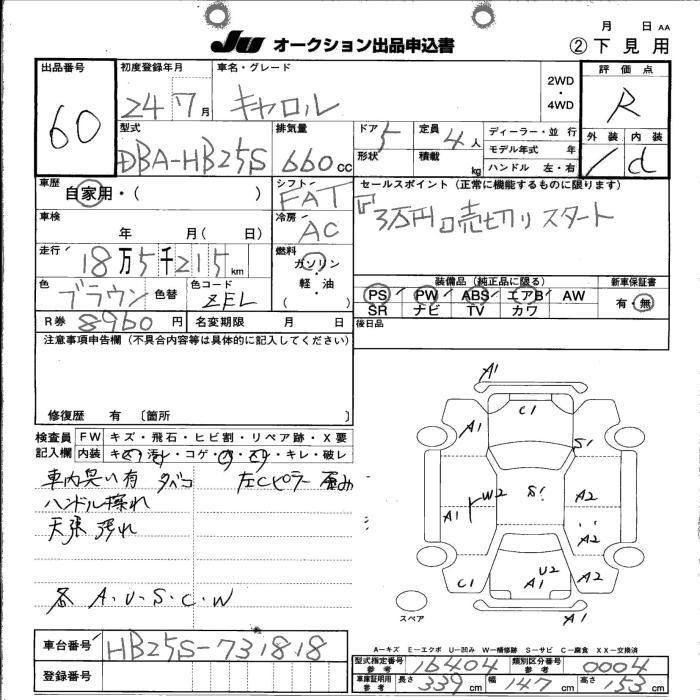 月 日 AA
JU オークション出品申込書 ②下見用
出品番号 60
初度登録年月 24 7月
車名・グレード キャロル
2WD・4WD
評価点 R
型式 DBA-HB25S
排気量 660cc
ドア 5
形状
定員 4人
積載 kg
ディーラー・並行
モデル年式 年
ハンドル 左・右
外装 内装 d
車歴 自家用・( )
シフト FAT
セールスポイント(正常に機能するものに限ります)
3万円 売切りスタート
車検 年 月( 日)
冷房 AC
走行 18万5千215km
燃料 ガソリン・軽・油 ( )
色 ブラウン 色替 色コード ZEL
装備品(純正品に限る)
PS PW ABS エアB AW
SR ナビ TV カワ
新車保証書 有・無
R券 8960円 名変期限 月 日
後日品
注意事項申告欄(不具合内容等は具体的に記入してください)
修復歴 有〔箇所 〕
検査員記入欄
FW キズ・飛石・ヒビ割・リペア跡・X要
内装 キズ・汚れ・コゲ・穴・スレ・キレ・破レ
車内臭い有 タバコ 左Cピラー 歪み
ハンドル擦れ
天張 張れ
各 A・U・S・C・W
A1
C1
A1
S1
W2
S1
A2
A1
A2
C1
U2
A1
A2
A1
スペア
A−キズ E−エクボ U−凹み W−補修跡 S−サビ C−腐食 XX−交換済
車台番号 HB25S-731818
登録番号
型式指定番号 参考 16404 類別区分番号 参考 0004
車庫証明用 参考 長さ 339cm 幅 147cm 高さ 153cm